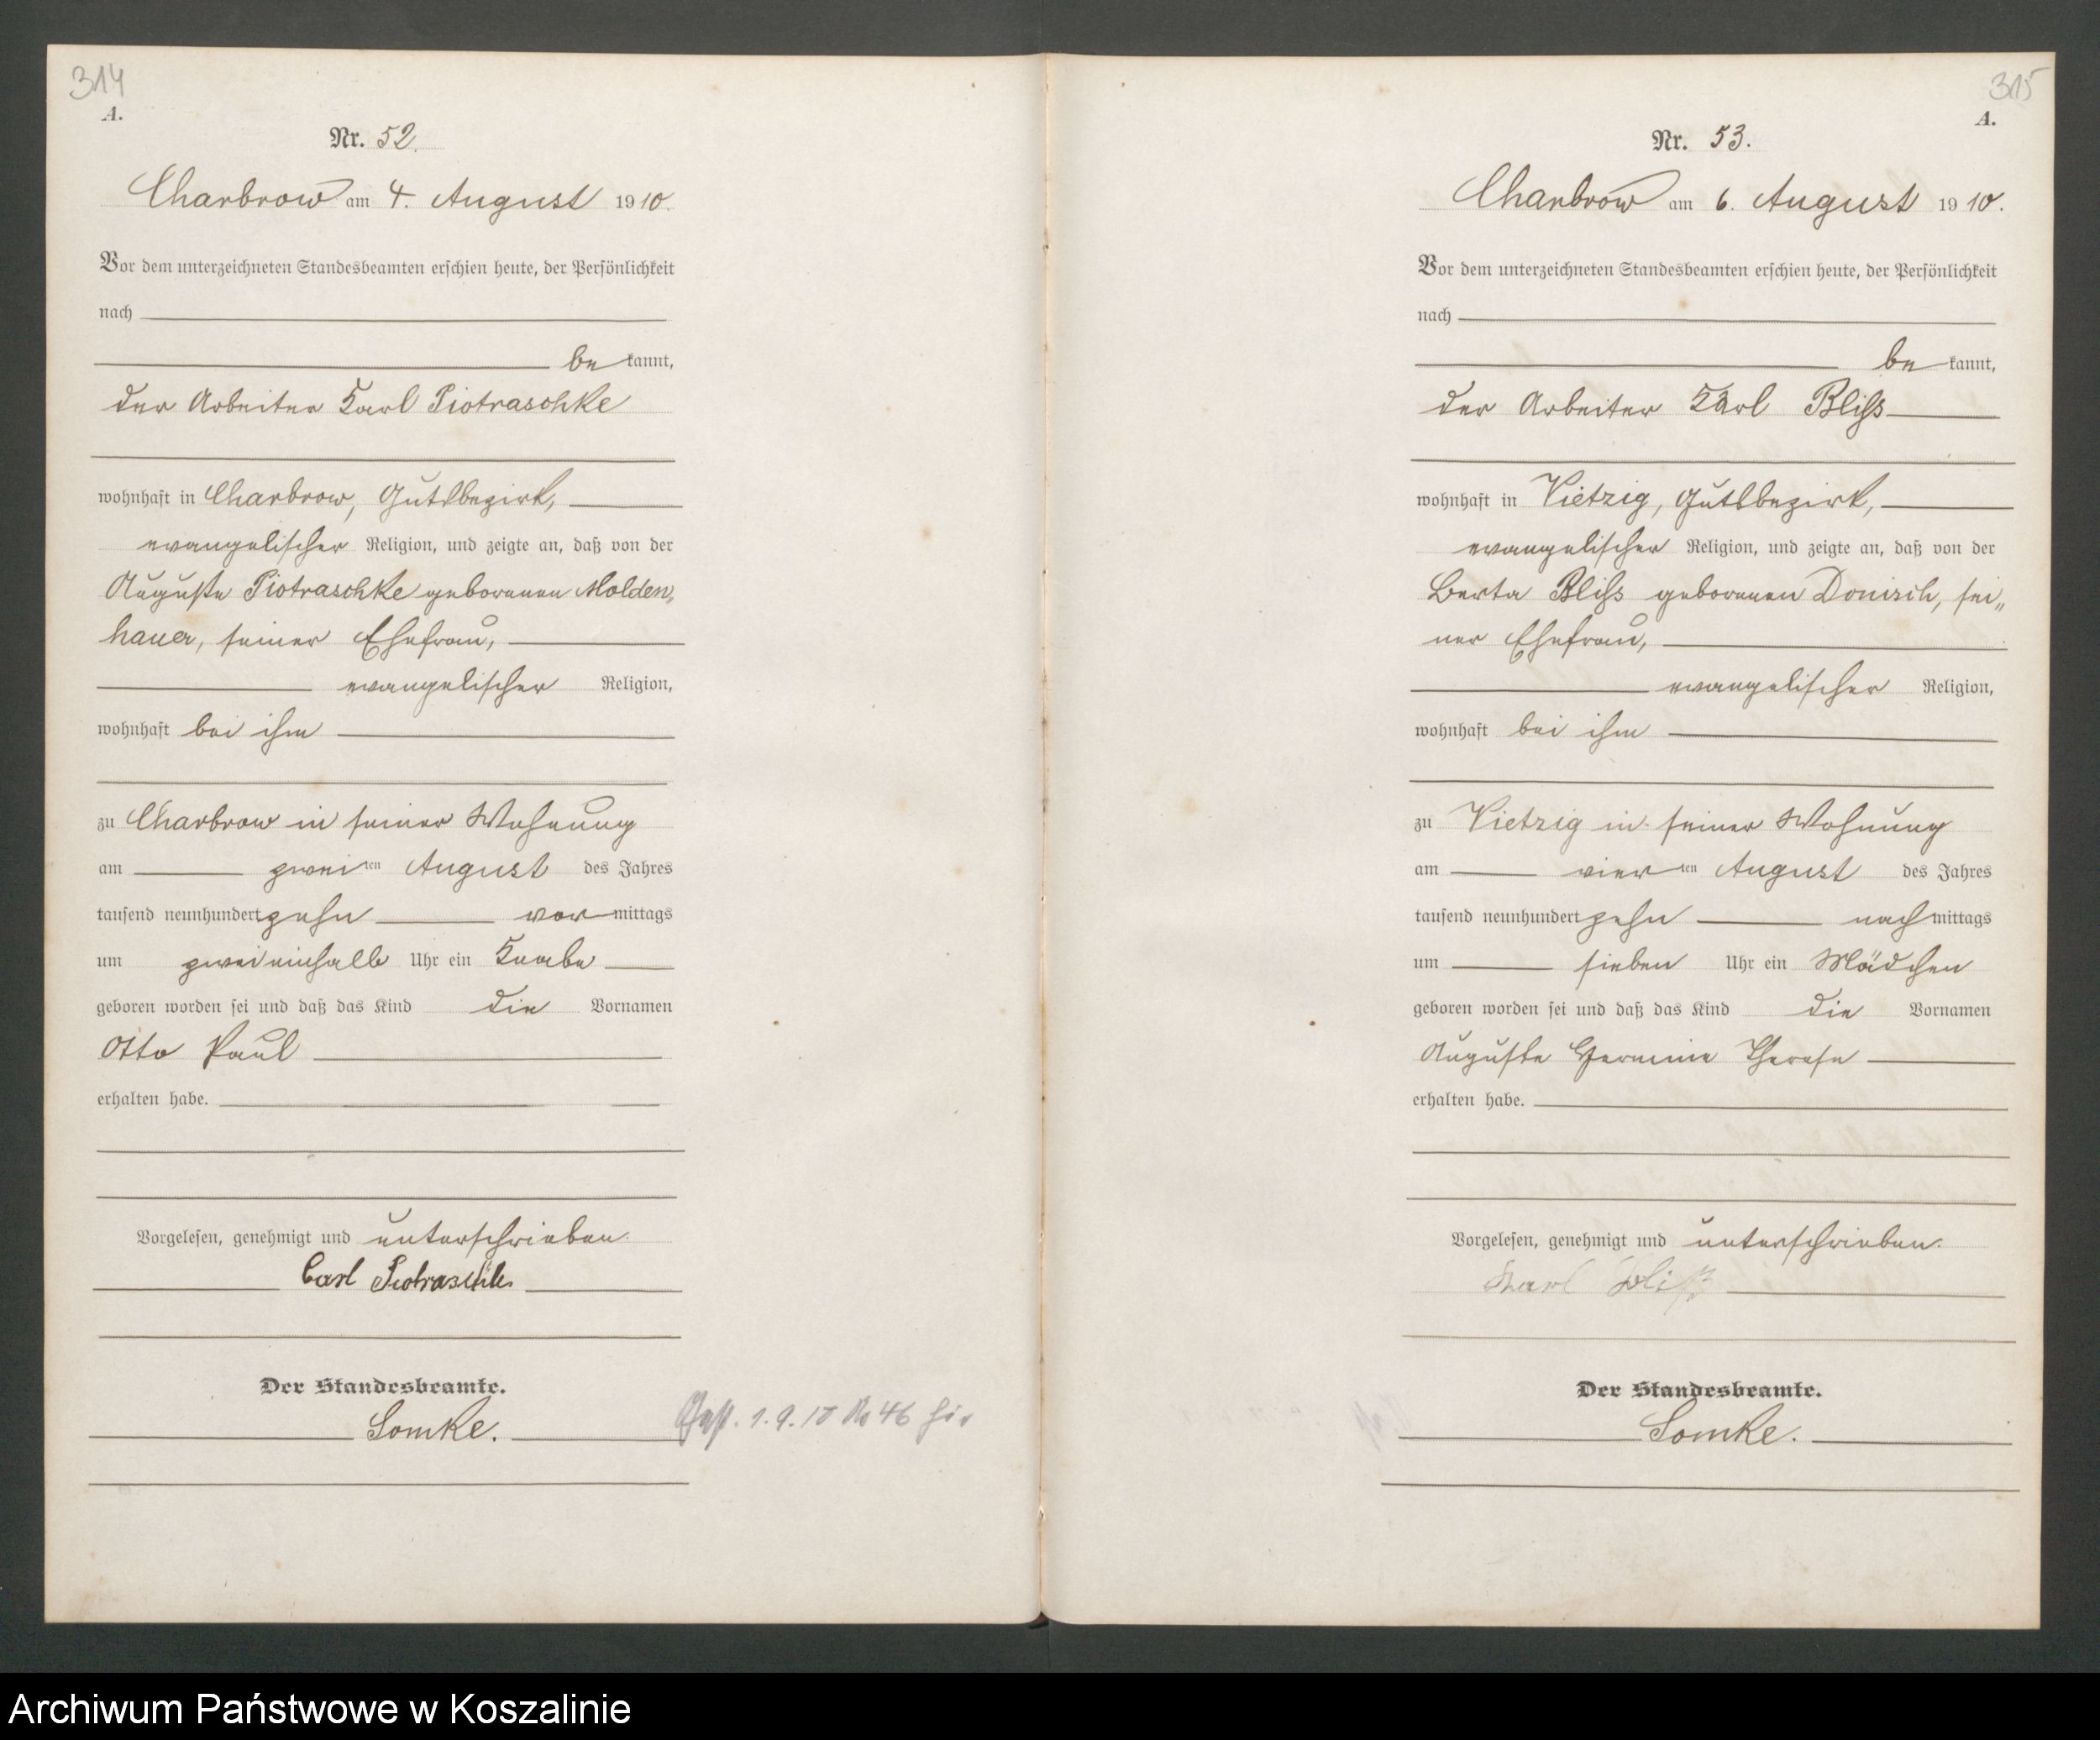 314
A.
Nr. 52.
Charbrow am 4. August 1910.
Vor dem unterzeichneten Standesbeamten erschien heute, der Persönlichkeit
nach
be kannt,
der Arbeiter Karl Piotraschke
wohnhaft in Charbrow, Gutsbezirk,
evangelischer Religion, und zeigte an, daß von der
Auguste Piotraschke geborenen Molden„
hauer, seiner Ehefrau,
evangelischer Religion,
wohnhaft bei ihm
zu Charbrow in seiner Wohnung
am zweiten August des Jahres
tausend neunhundert zehn vormittags
um zweieinhalb Uhr ein Knabe
geboren worden sei und daß das Kind die Vornamen
Otto Paul
erhalten habe.
Vorgelesen, genehmigt und unterschrieben.
Carl Piotraschke
Der Standesbeamte.
Lomke.
Gest. 1.9.10 No 46 hier
315
A.
Nr. 53.
Charbrow am 6. August 1910.
Vor dem unterzeichneten Standesbeamten erschien heute, der Persönlichkeit
nach
be kannt,
der Arbeiter Karl Bliss
wohnhaft in Vietzig, Gutsbezirk,
evangelischer Religion, und zeigte an, daß von der
Berta Bliss geborenen Donisch, sei„
ner Ehefrau,
evangelischer Religion,
wohnhaft bei ihm
zu Vietzig in seiner Wohnung
am vierten August des Jahres
tausend neunhundert zehn nachmittags
um sieben Uhr ein Mädchen
geboren worden sei und daß das Kind die Vornamen
Auguste Hermine Therese
erhalten habe.
Vorgelesen, genehmigt und unterschrieben.
Karl Bliß
Der Standesbeamte.
Lomke.
Archiwum Państwowe w Koszalinie